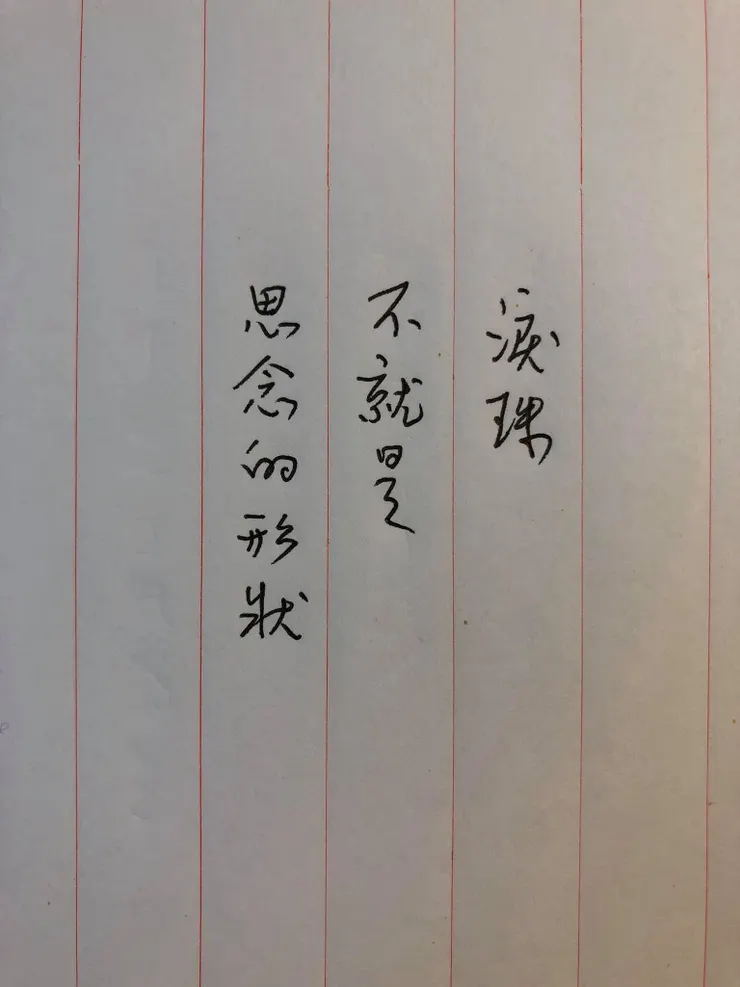 淚珠
不就是
思念的形狀